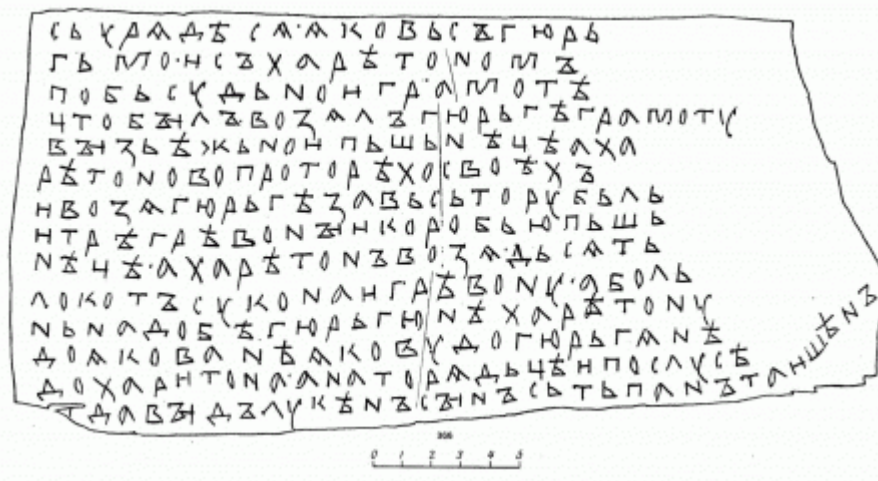 сь урѧдѣсѧ·ѧковьсъгюрь
гьмо·исъхарѣтономъ
побьсудьноиграмотѣ
цтобꙑлъвозѧлъгюрьгѣграмоту
вꙑзьѣжьноипьшьнѣцѣаха
рѣтоновопроторѣхосвоѣхъ
ивозѧгюрьгѣзавьсьторубьль
итрѣгрѣвонꙑикоробьюпьшь
нѣцѣ·ахарѣтонъвозѧ·дьсѧть
локотъсуконаигрѣвону·аболь
ньнадобѣгюрьгюнѣхарѣтону
доѧкованѣѧковудогюрьгѧнѣ
дохаритона·анаторѧдьцѣипослусѣ
давꙑдълукѣнъсꙑнъсьтьпанътаишѣнъ
366
0 1 2 3 4 5